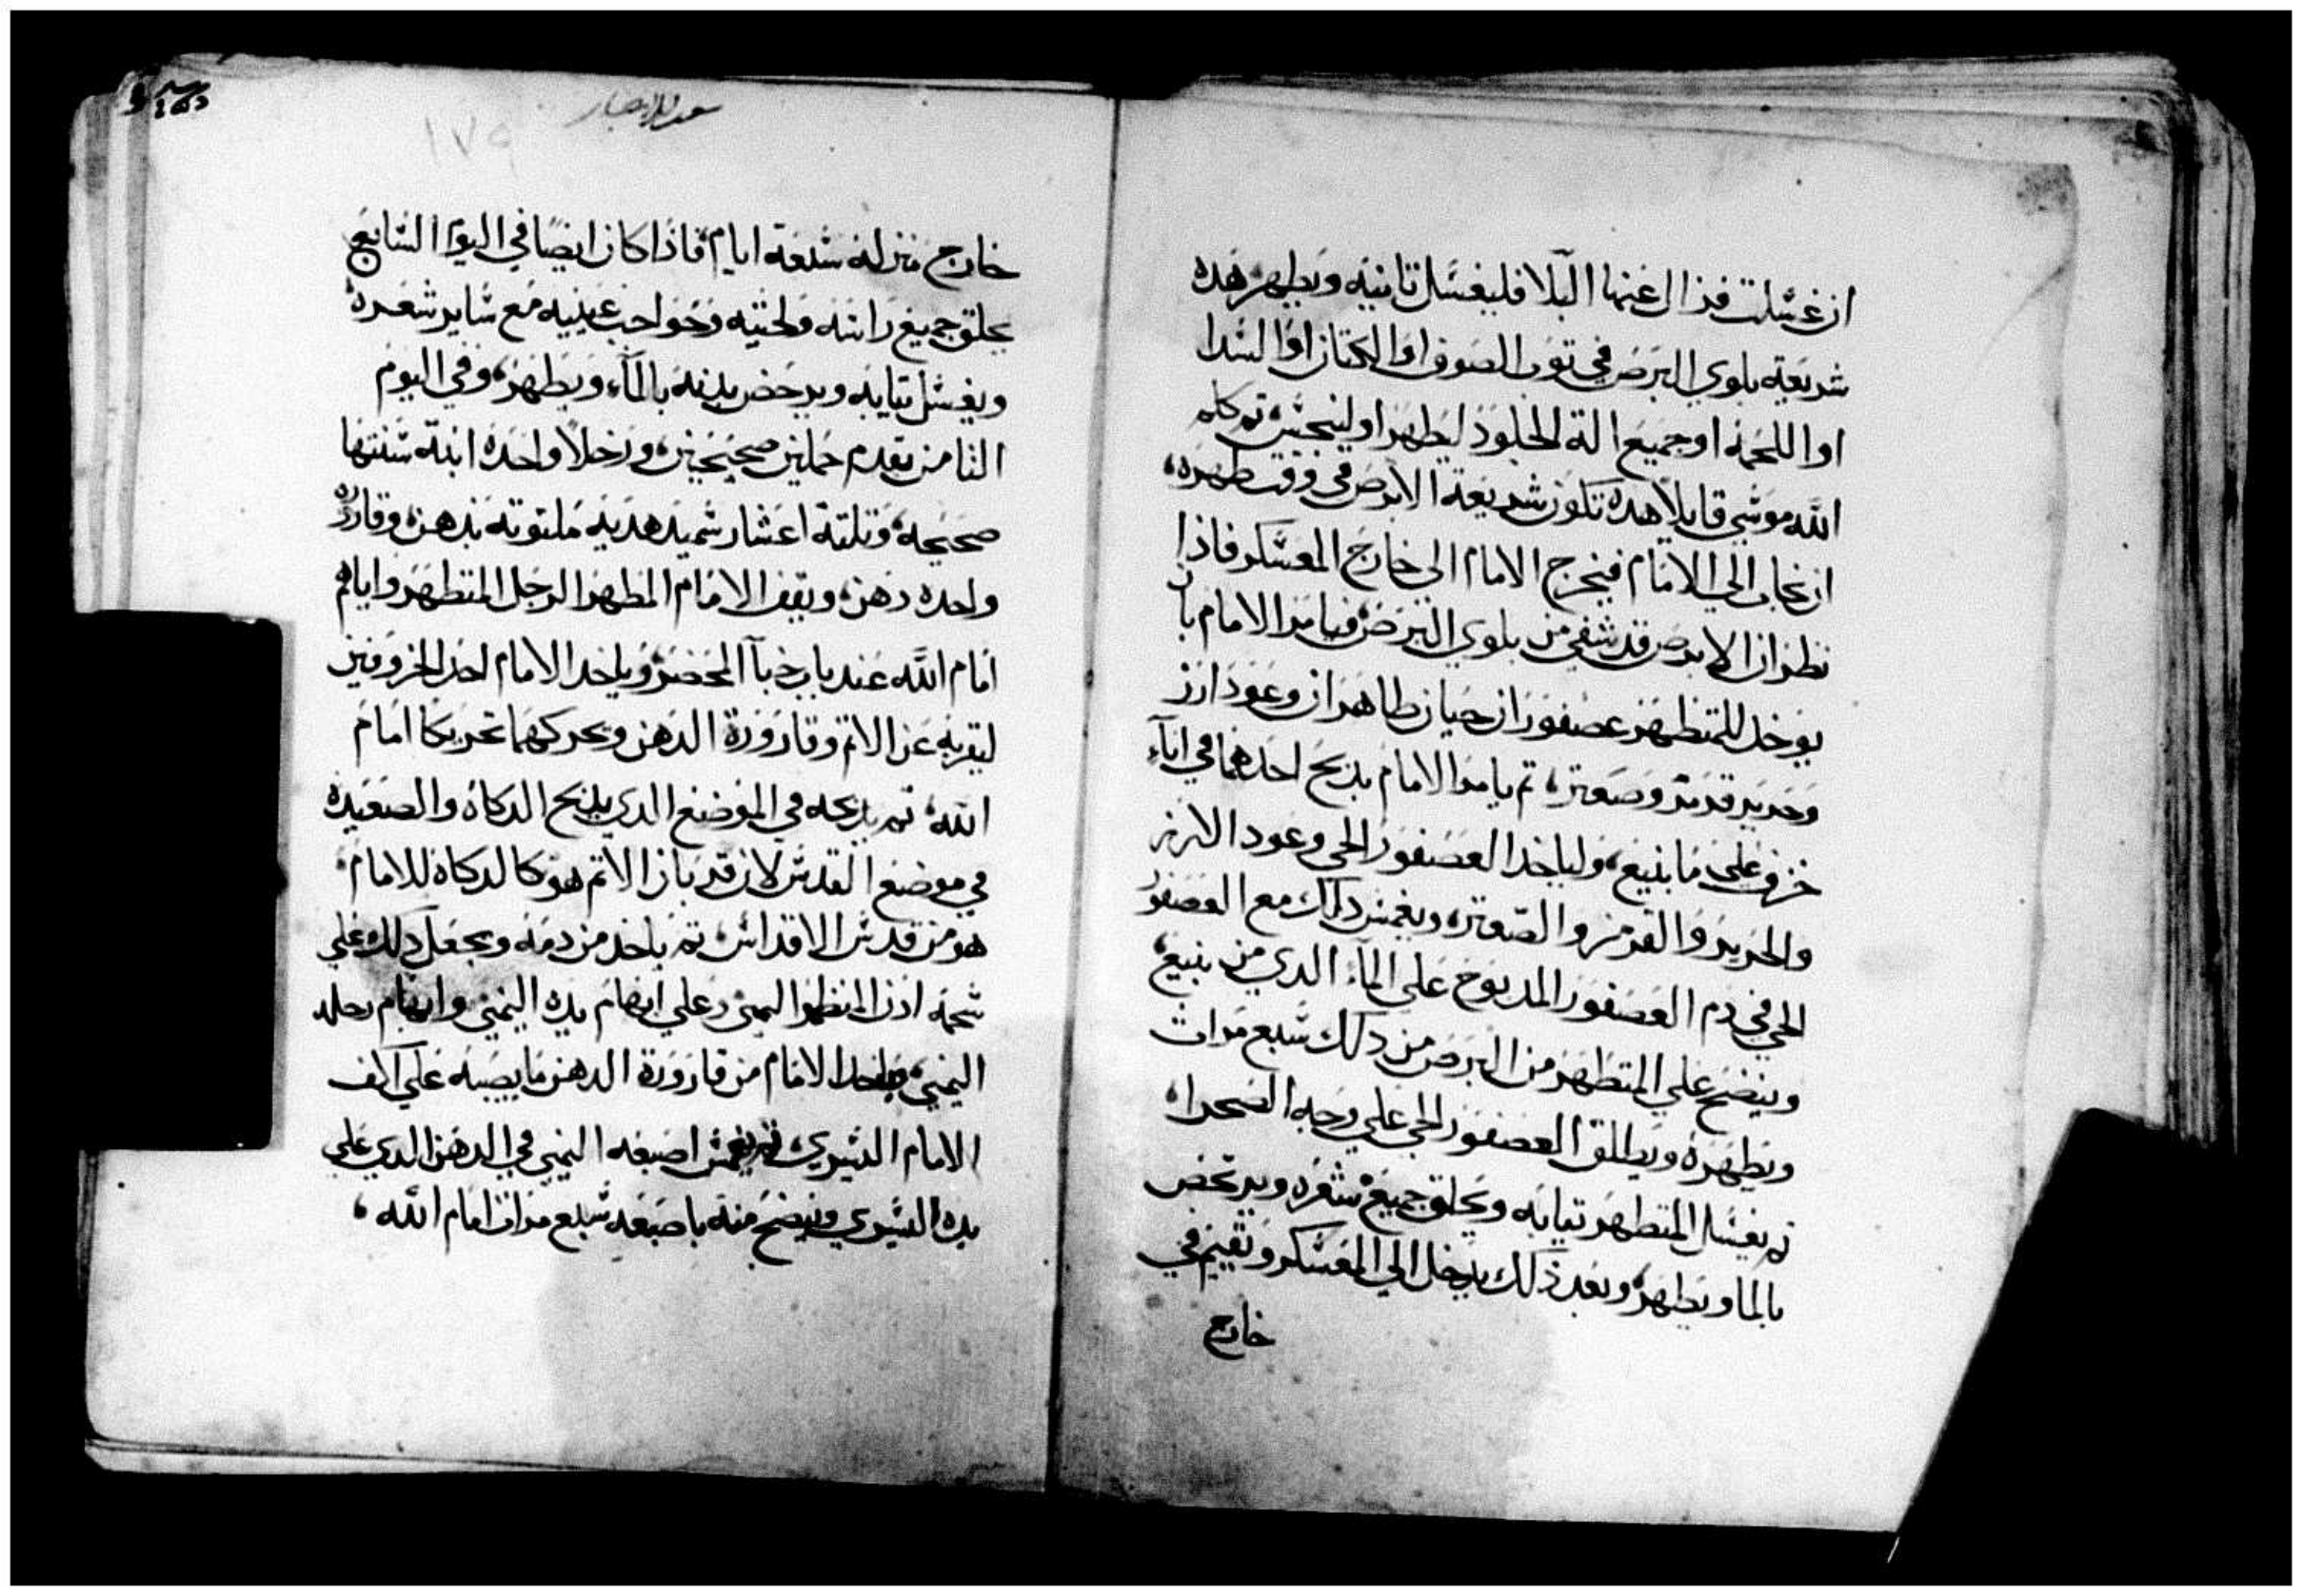 ان غسلت فزال عنها البلا فليغسل تانيه ويطهر هده
شريعة بلوي البرص في توب الصوف او الكتان او السدا
او اللحمة او جميع الة الجلود ليطهر او لينجس تم كلم
الله موسي قايلا هده تكون شريعة الابرص في وقت طهره
الي الامام فيخرج الامام الي خارج المعسكر فاذا
نظر ان الابرص قد شفي من بلوي البرص فيامر الامام بان
يوخد للمتطهر عصفوران حيان طاهران وعود ارز
وحرير قرمز وصعتر تم يامر الامام بدبح احدهما في اناء
خزف علي ما ينبع ولياخد العصفور الحي وعود الارز
والحرير والقرمز والصعتر ويغمس دلك مع العصفور
الحي في دم العصفور المدبوح علي الماء الدي من ينبع
وينضح علي المتطهر من البرص من دلك سبع مرات
ويطهره ويطلق العصفور الحي علي وجه الصحرا
تم يغسل المتطهر تيابه ويحلق جميع شعره ويرتحض
بالما ويطهر وبعد ذلك يدخل الي المعسكر ويقيم في
خارج
١٧٩
خارج منزله سبعة ايام فاذا كان ايضا في اليوم السابع
يحلق جميع راسه ولحيته وحواجب عينيه مع ساير شعره
ويغسل تيابه ويرحض بدنه بالماء ويطهر وفي اليوم
الثامن يقدم حملين صحيحين ورخلا واحدة ابنة سنتها
صحيحه وتلتة اعشار سميد هديه ملتوته بدهن وقارورة
واحده دهن ويقف الامام المطهر الرجل المتطهر واياهم
امام الله عند باب خبآ المحضر وياخد الامام احد الخروفين
ليقربه عن الاتم وقارورة الدهن ويحركهما تحريكا امام
الله تم يدبحه في الموضع الدي يدبح الدكاة والصعيدة
في موضع القدس لان قربان الاتم هو كالدكاة للامام
هو من قدس الاقداس تم ياخد من دمه ويجعل دلك علي
شحمة ادن المتطهر اليمني وعلي ابهام يده اليمني وابهام رجله
اليمني وياخد الامام من قارورة الدهن ما يصبه علي كف
الامام اليسري تم يغمس اصبعه اليمني في الدهن الدي علي
يده اليسري وينضح منه باصبعه سبع مرات امام الله